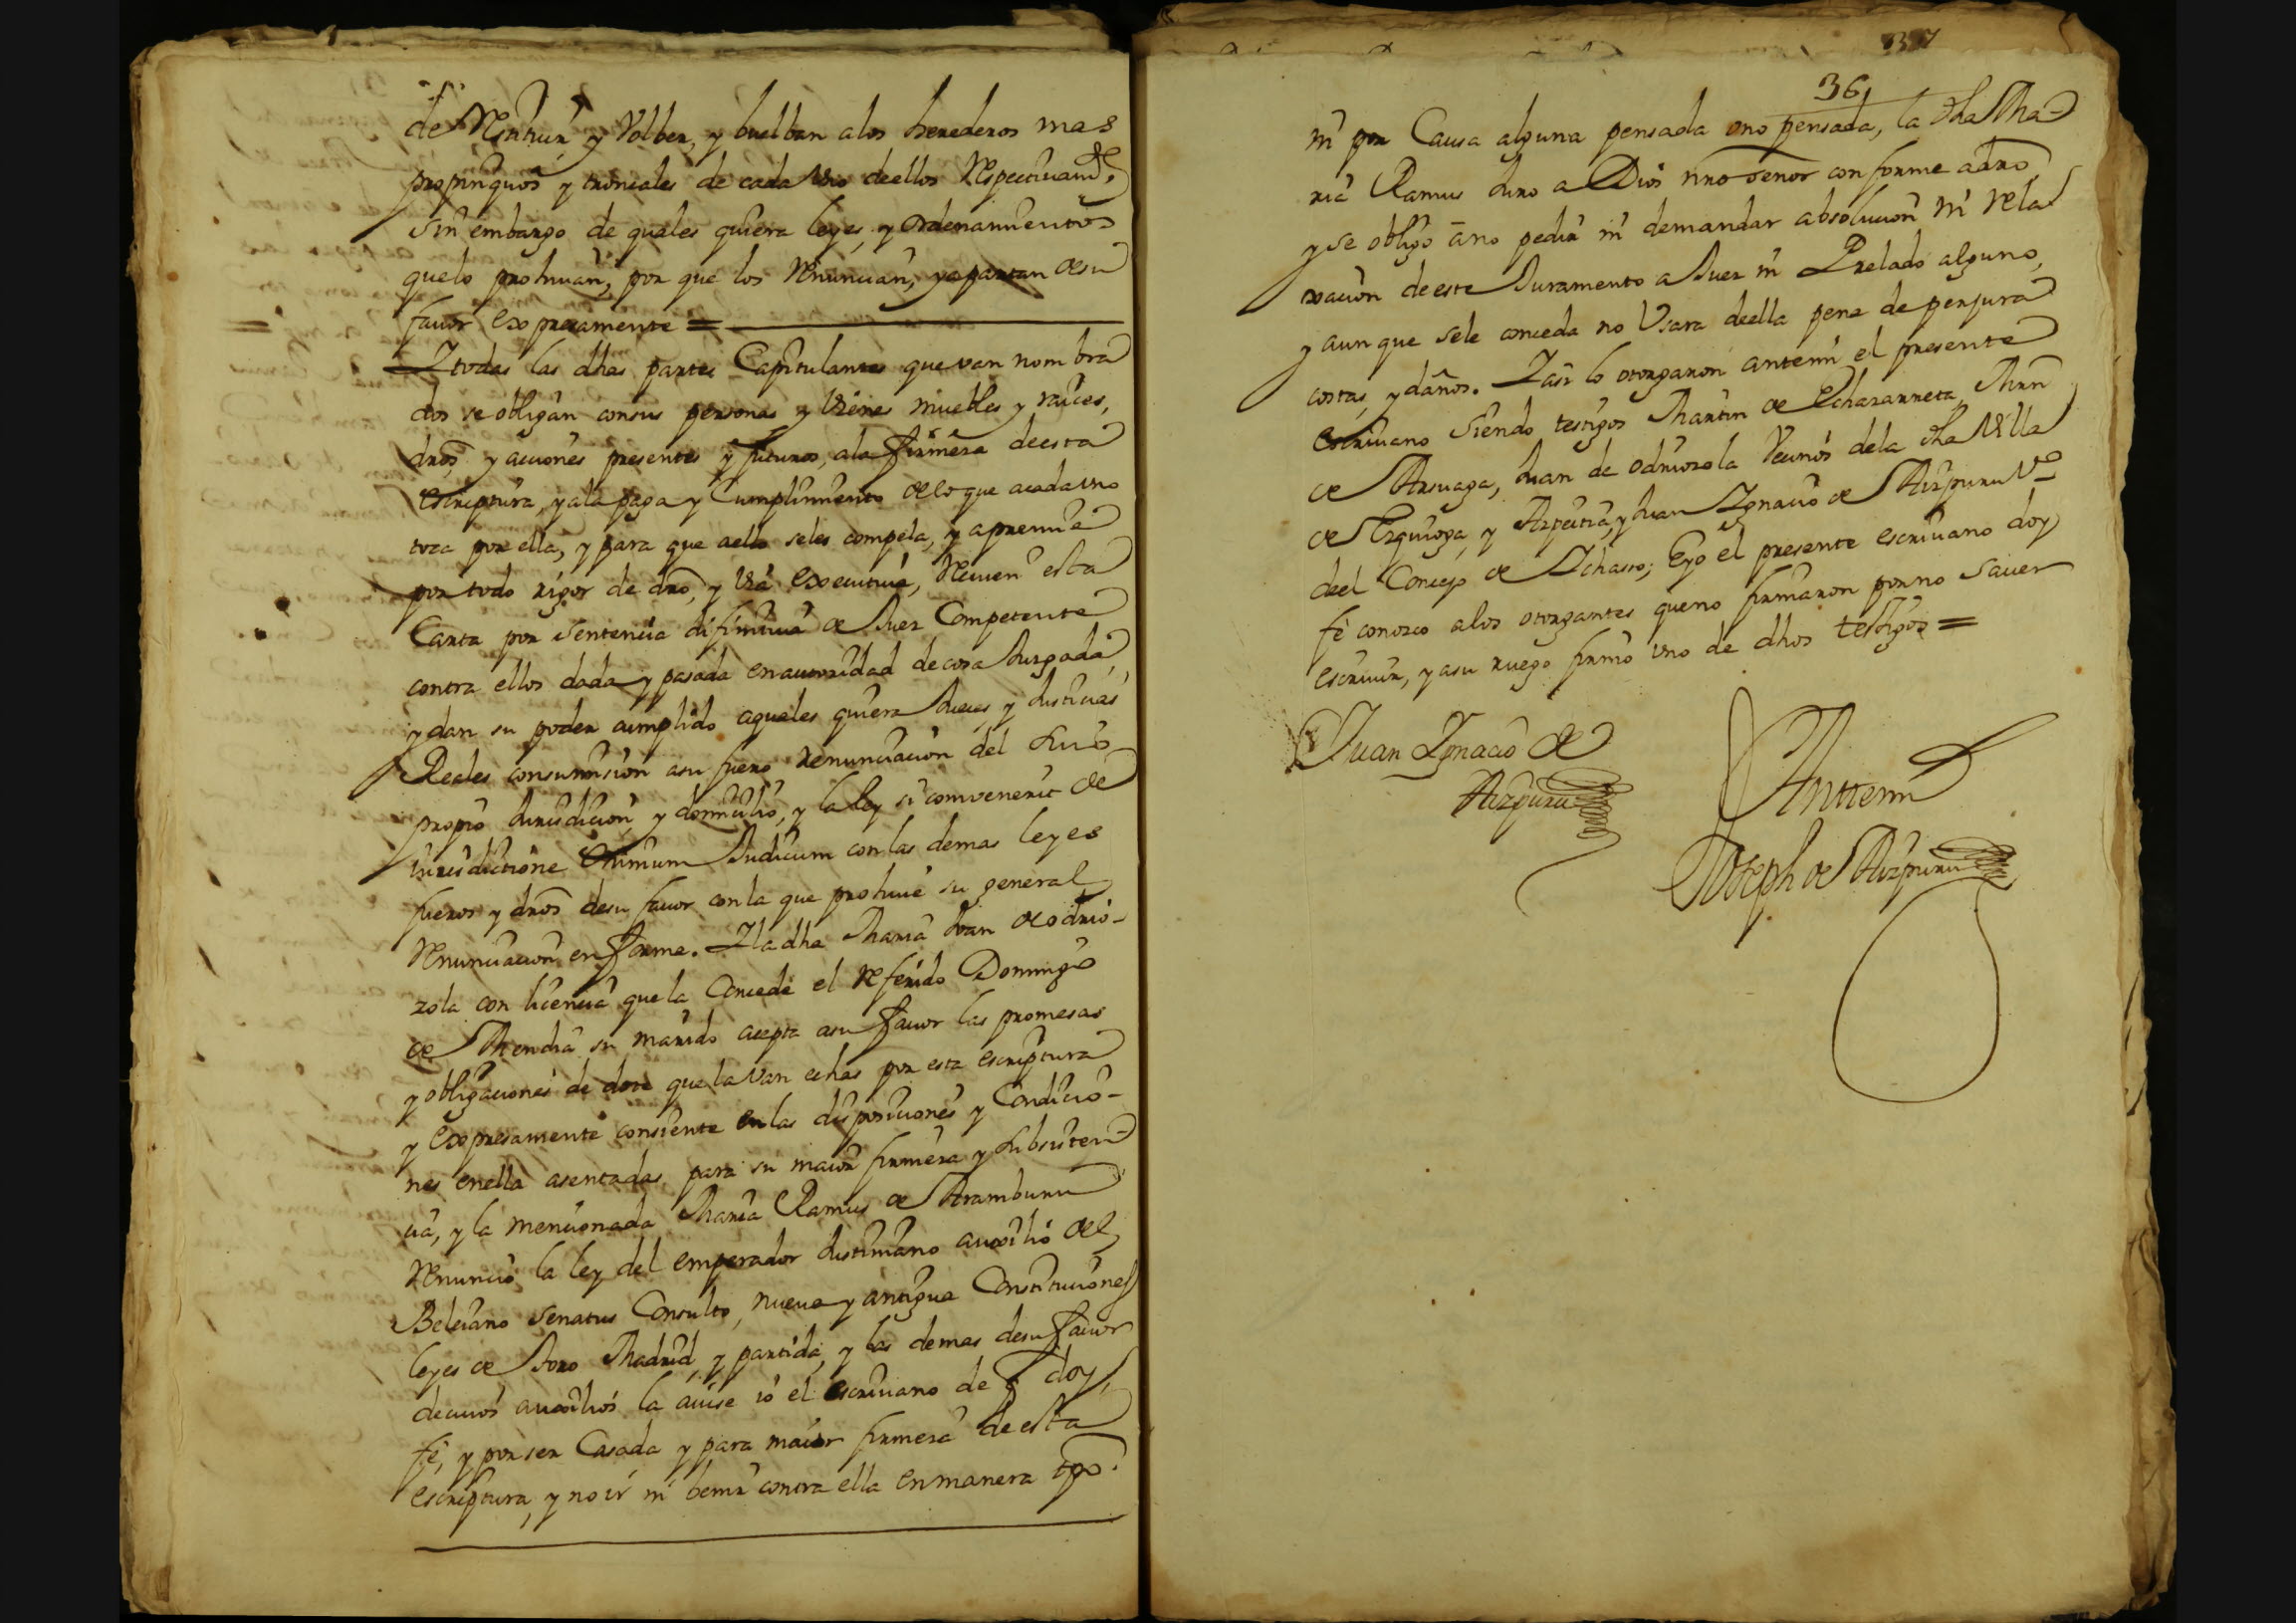 de Restituir y Volber, y buelban alos herederos mas
propinquos y tronicales de cada Vno deellos Respectivamte.
sin embargo de quales quiera leyes, y ordenamientos
quelo prohiuan, por que los Renuncian, y apartan desu
favor expresamente =
Y todas las dhas partes Capitulantes que van nombra
dos se obligan consus personas y Vienes muebles y raices,
dros, y acciones presentes y futuros, ala firmeza deesta
escriptura, y ala paga y Cumplimiento de lo que acada vno
toca por ella, y para que aello seles compela, y apremie
por todo rigor de dro, y Via executiva, Reciuen esta
Carta por sentencia difinitiua de Juez Competente
contra ellos dada y pasada enautoridad decosa Juzgada,
y dan su poder cumplido aquales quiera Jueces y Justicias
Reales consumision asu fuero renunciacion del suio
propio Jurisdicion, y domicilio, y la ley si convenerit de
iurisdictione Omnium Judicum conlas demas leyes
fueros y dros desu fauor conla que prohiue su general
Renunciacion enforma. Y la dha Maria Juan de odrio-
zola con licencia quela Concede el Referido Domingo
de Mendia su marido acepta asu fauor las promesas
y obligaciones de dote quela van echas por esta escriptura
y expresamente consiente enlas disposiciones y Condicio-
nes enella asentadas, para su maior firmeza y subsisten-
cia, y la mencionada Maria Ramus de Aramburu
Renuncio la ley del emperador Justiniano auxilio del
Beleiano Senatus Consulto, nueva y antigua Constituciones
leyes de Toro Madrid, y partida, y las demas desu fauor
decuios auxilios la auise io el escriuano de q doy
fe, y por ser Casada y para maior firmeza de esta
escriptura, y no ir ni benir contra ella enmanera
37
36
ni por Causa alguna pensada ono pensada, la dha Ma-
ria Ramus Juro a Dios nro senor conforme adro
y se obligo ano pedir ni demandar absolucion ni rela
xacion deeste Juramento a Juez ni Prelado alguno,
y aun que sele conceda no Vsara deella pena de perjura
costas, y daños. Y asi lo otorgaron antemi el presente
escriuano siendo testigos Martin de Echezarreta,
de Arsuaga, Juan de odriozola Vecinos dela dha Villa
de Ezquioga, y Azpeitia, y Juan Ygnacio de Aizpuru Vo
deel Concejo de Ychasso; Eyo el presente escriuano doy
fe conozco alos otorgantes queno firmaron por no sauer
escriuir, y asu ruego firmo vno de dhos testigos =
Juan Ygnacio de
Aizpuru
Anttemi
Joseph de Aizpuru